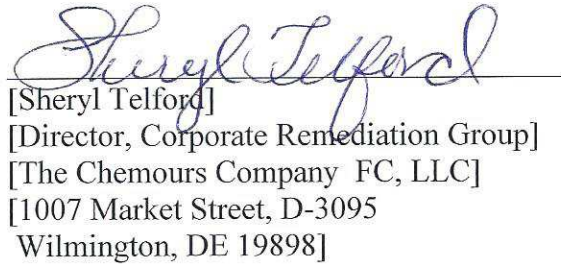 Sheryl Telford
[Sheryl Telford]
[Director, Corporate Remediation Group]
[The Chemours Company FC, LLC]
[1007 Market Street, D-3095
Wilmington, DE 19898]